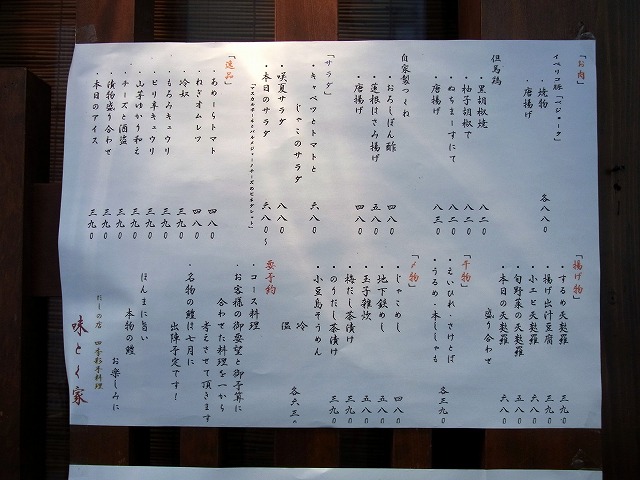 「お肉」
イベリコ豚「ベジョータ」
・焼物
・唐揚げ
各八八〇
但馬鶏
・黒胡椒焼 八二〇
・柚子胡椒で 八二〇
・ぬちまーすにて 八二〇
・唐揚げ 八三〇
自家製つくね
・おろしぽん酢 四八〇
・蓮根はさみ揚げ 五八〇
・唐揚げ 四八〇
「サラダ」
・キャベツとトマトと
じゃこのサラダ 六八〇
・咲夏サラダ 八八〇
・本日のサラダ 六八〇〜
「逸品」
・あめーらトマト 四八〇
・ねぎオムレツ 四八〇
・冷奴 三九〇
・もろみキュウリ 三九〇
・ピリ辛キュウリ 三九〇
・山芋ゆかり和え 三九〇
・チーズと酒盗 三九〇
・漬物盛り合わせ 三九〇
・本日のアイス 三九〇
「揚げ物」
・するめ天麩羅 三九〇
・揚げ出汁豆腐 四八〇
・小エビ天麩羅 五八〇
・旬野菜の天麩羅 五八〇
・本日の天麩羅
盛り合わせ 六八〇
「干物」
・えいひれ・さけとば
・うるめ・本ししゃも
各三九〇
「〆物」
・じゃこめし 四八〇
・地下鉄めし 五八〇
・玉子雑炊 五八〇
・梅だし茶漬け 三九〇
・のりだし茶漬け 三九〇
・小豆島そうめん
冷
温
各六三〇
要予約
・コース料理
・お客様の御要望と御予算に
合わせた料理を一から
考えさせて頂きます
・名物の鱧は七月に
出陣予定です!
ほんまに旨い
本物の鱧
お楽しみに
だしの店 四季彩手料理
味とく家